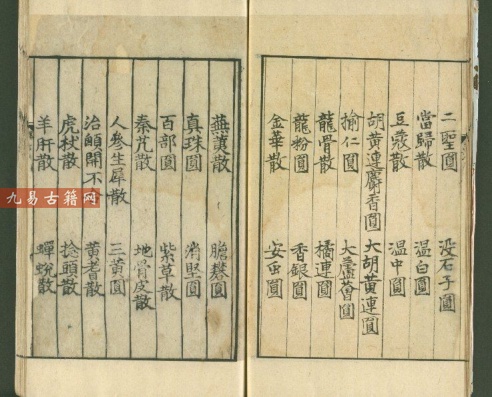 二聖圓 没石子圓
當歸散 温白圓
豆蔻散 温中圓
胡黄連麝香圓 大胡黄連圓
榆仁圓 大蘆薈圓
龍骨散 橘連圓
龍粉圓 香銀圓
金華散 安虫圓
蕪荑散 膽礬圓
真珠圓 消堅圓
百部圓 紫草散
秦艽散 地骨皮散
人參生犀散 三黄圓
治顖開不 黄耆散
虎杖散 捻頭散
羊肝散 蟬蜕散
九易古籍网